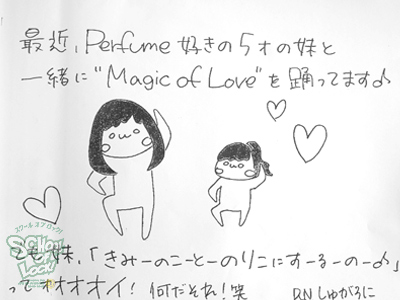 最近、Perfume好きの5才の妹と
一緒に"Magic of Love"を踊ってます♪
スクールオブロック!
SCHOOL
OF LOCK!
でも妹、「きみーのこーとーのりこにすーるーのー♪」
ってオオオイ! 何だそれ!笑
R.N しゅがろに